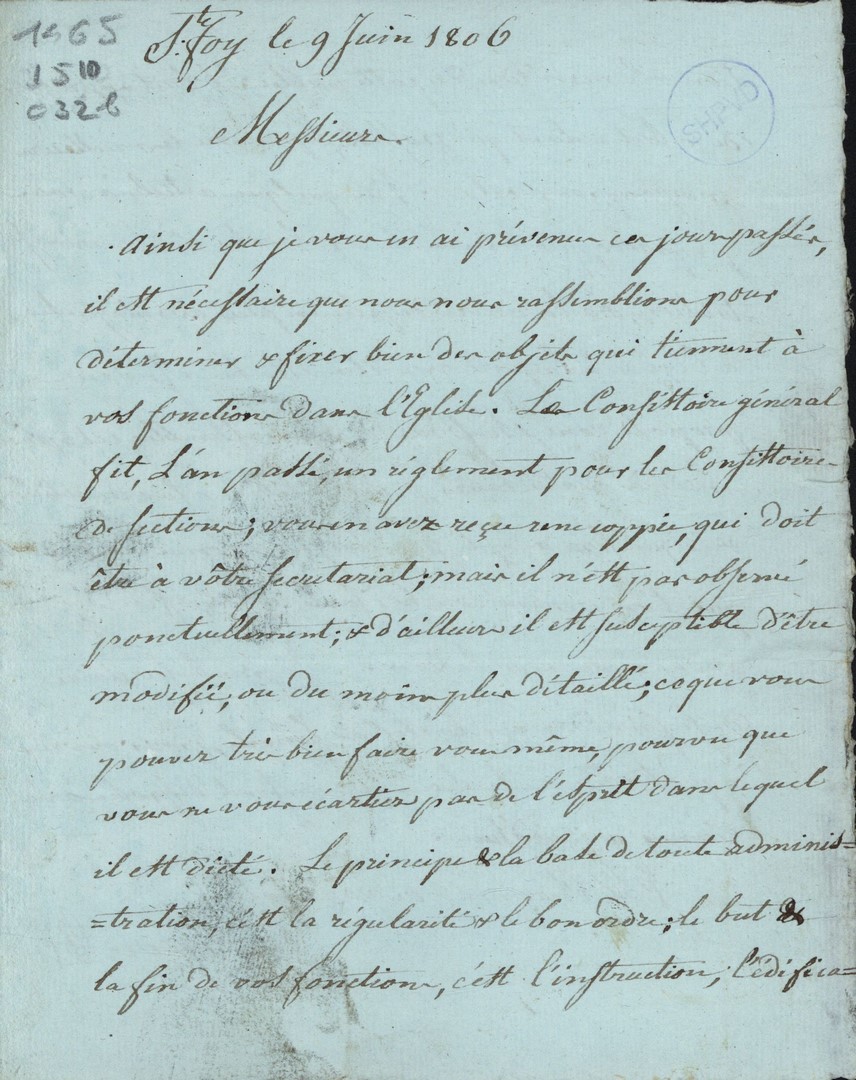 1965
1510
032-6
SHPVD
Ste Foy le 9 Juin 1806
Messieurs.
Ainsi que je vous en ai prévenus ces jours passés,
il est nécessaire que nous nous rassemblions pour
déterminer & fixer bien des objets qui tiennent à
vos fonctions dans l'Eglise. Le Consistoire général
fit, L'an passé, un réglement pour les Consistoires
de sections; vous en avez reçu une coppie, qui doit
être à vôtre secretariat; mais il n'est pas observé
ponctuellement; & d'ailleurs il est susceptible d'être
modifié, ou du moins plus détaillé; ce que vous
pouvez très bien faire vous même, pourvu que
vous ne vous écartiez pas de l'esprit dans lequel
il est dicté. Le principe & la base de toute adminis=
=tration, c'est la régularité & le bon ordre; le but &
la fin de vos fonctions, c'est l'instruction, l'édifica=